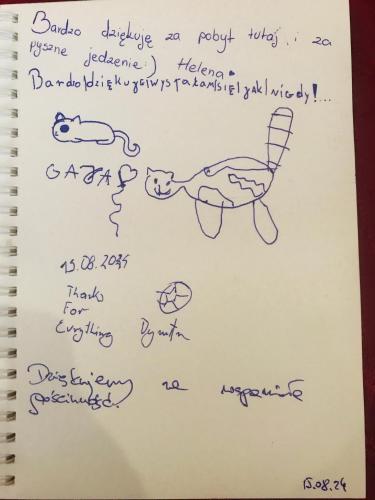 Bardzo dziękuję za pobyt tutaj i za
pyszne jedzenie:) Helena.
Bardzo|dziękuję|wyspałam|się|jak|nigdy!...
GAJA
15.08.2024
Thanks
For
Evrything Dymitr
Dziękujemy za wspaniałą
gościnność.
15.08.24